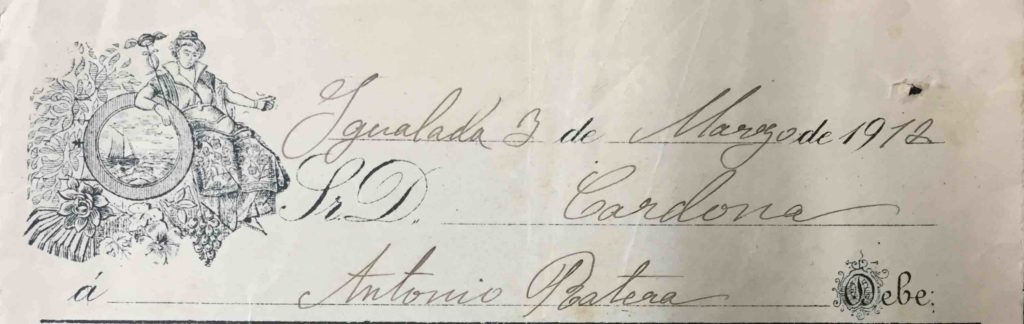 Igualada 3 de Marzo de 1912
Sr. D. Cardona
á Antonio Ratera Debe: